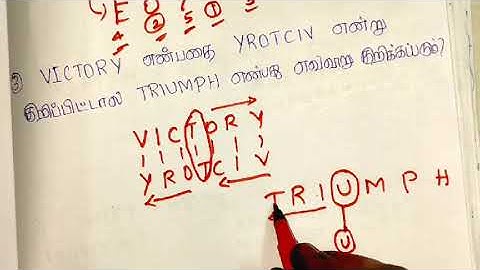 4 2 5 1 3
③ VICTORY என்பதை YROTCIV என்று
குறிப்பிட்டால் TRIUMPH என்பது எவ்வாறு குறிக்கப்படும்?
V I C T O R Y
Y R O T C I V
T R I U M P H
U